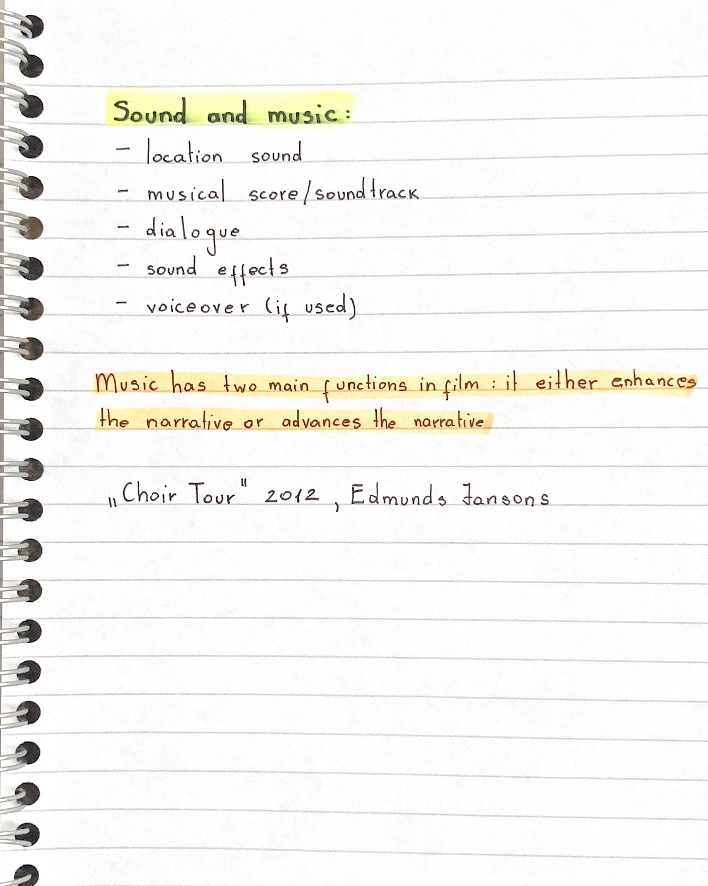 Sound and music:
- location sound
- musical score/soundtrack
- dialogue
- sound effects
- voiceover (if used)
Music has two main functions in film: it either enhances
the narrative or advances the narrative
„Choir Tour" 2012, Edmunds Jansons